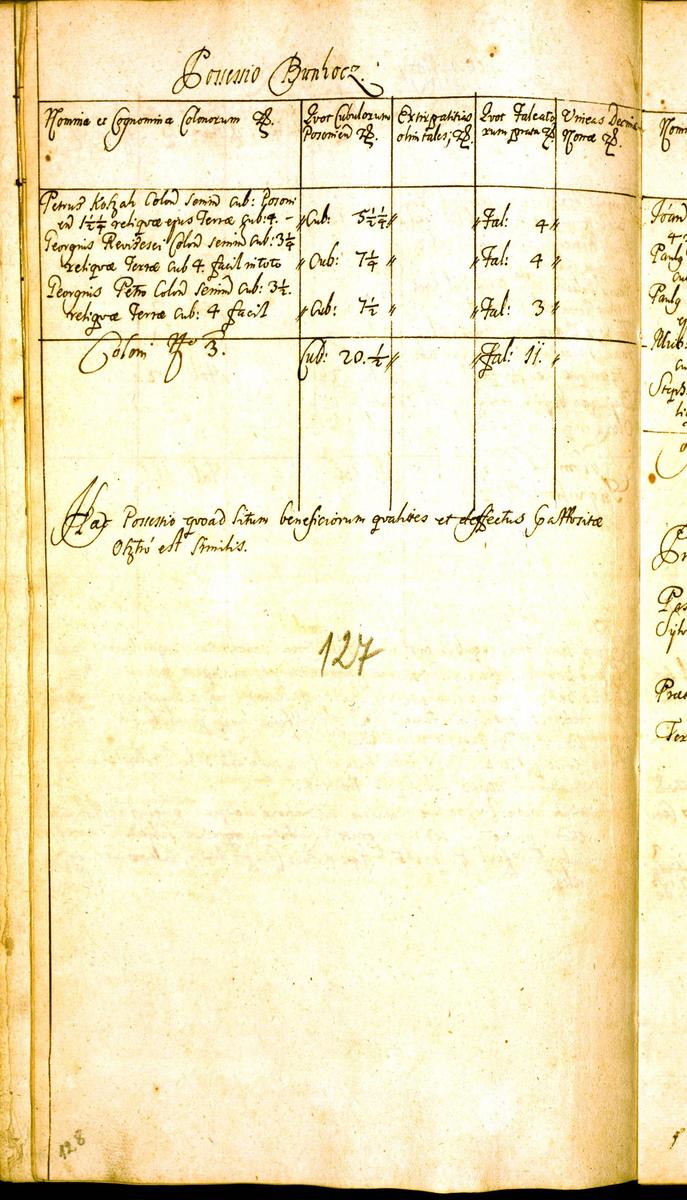 Possessio Bunhocz.
Nomina et Cognomina Colonorum
Quot Cubulorum
Posonien
Extirpatitias
olim tales,
Quot Falcato
rum prata
Vineas Decima
Nonae
Petrus Kozah Colon Semin Cub: Posoni
en 1½¼ reliquae ejus Terrae Cub: 4. –
Cub: 5½¼
Fal: 4
Georgius Colon semin Cub: 3¼
reliquae Terrae Cub 4. facit in toto
Cub: 7¼
Fal: 4
Georgius Petro Colon Semin Cub: 3½.
reliquae Terrae Cub: 4 facit
Cub: 7½
Fal: 3
Coloni Nro 3.
Cub: 20.½
Fal: 11.
Haec Possessio quoad Situm beneficiorum qvalites et deffectus
est Similis.
127
128